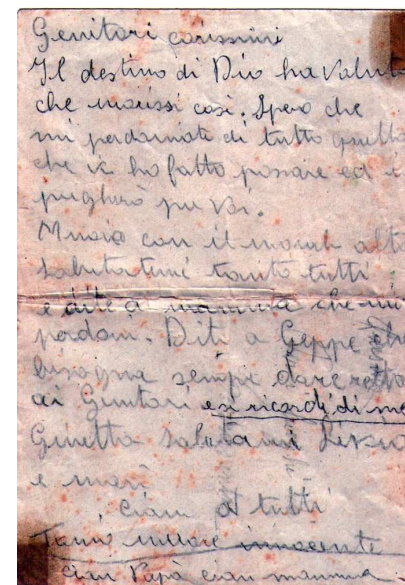 Genitori carissimi
Il destino di Dio ha Voluto
che morissi così. Spero che
mi perdonate di tutto quello
che vi ho fatto passare ed i
pregherò per Voi.
Muoio con il morale alto
Salutatemi tanto tutti
e dite a mamma che mi
perdoni. Diti a Geppe che
bisogna sempre dare retta
ai Genitori e si ricordi di me
Ginetta Salutami
e
ciau a tutti
innocente
ciau Papà ciau mamma